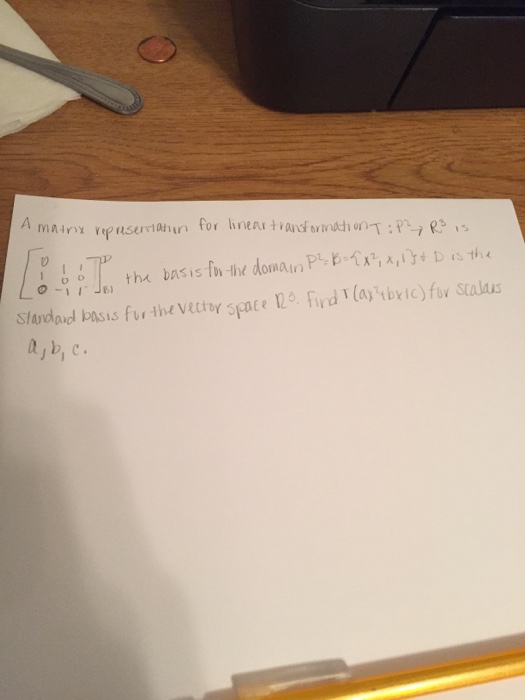 A matrix representation for linear transformation T : P² → R³ is
[0 1 1]D
[1 0 0] the basis for the domain P² = B = {x², x, 1} + D is the
[0 -1 1]B
standard basis for the vector space R³. Find T(ax²+bx+c) for scalars
a, b, c.